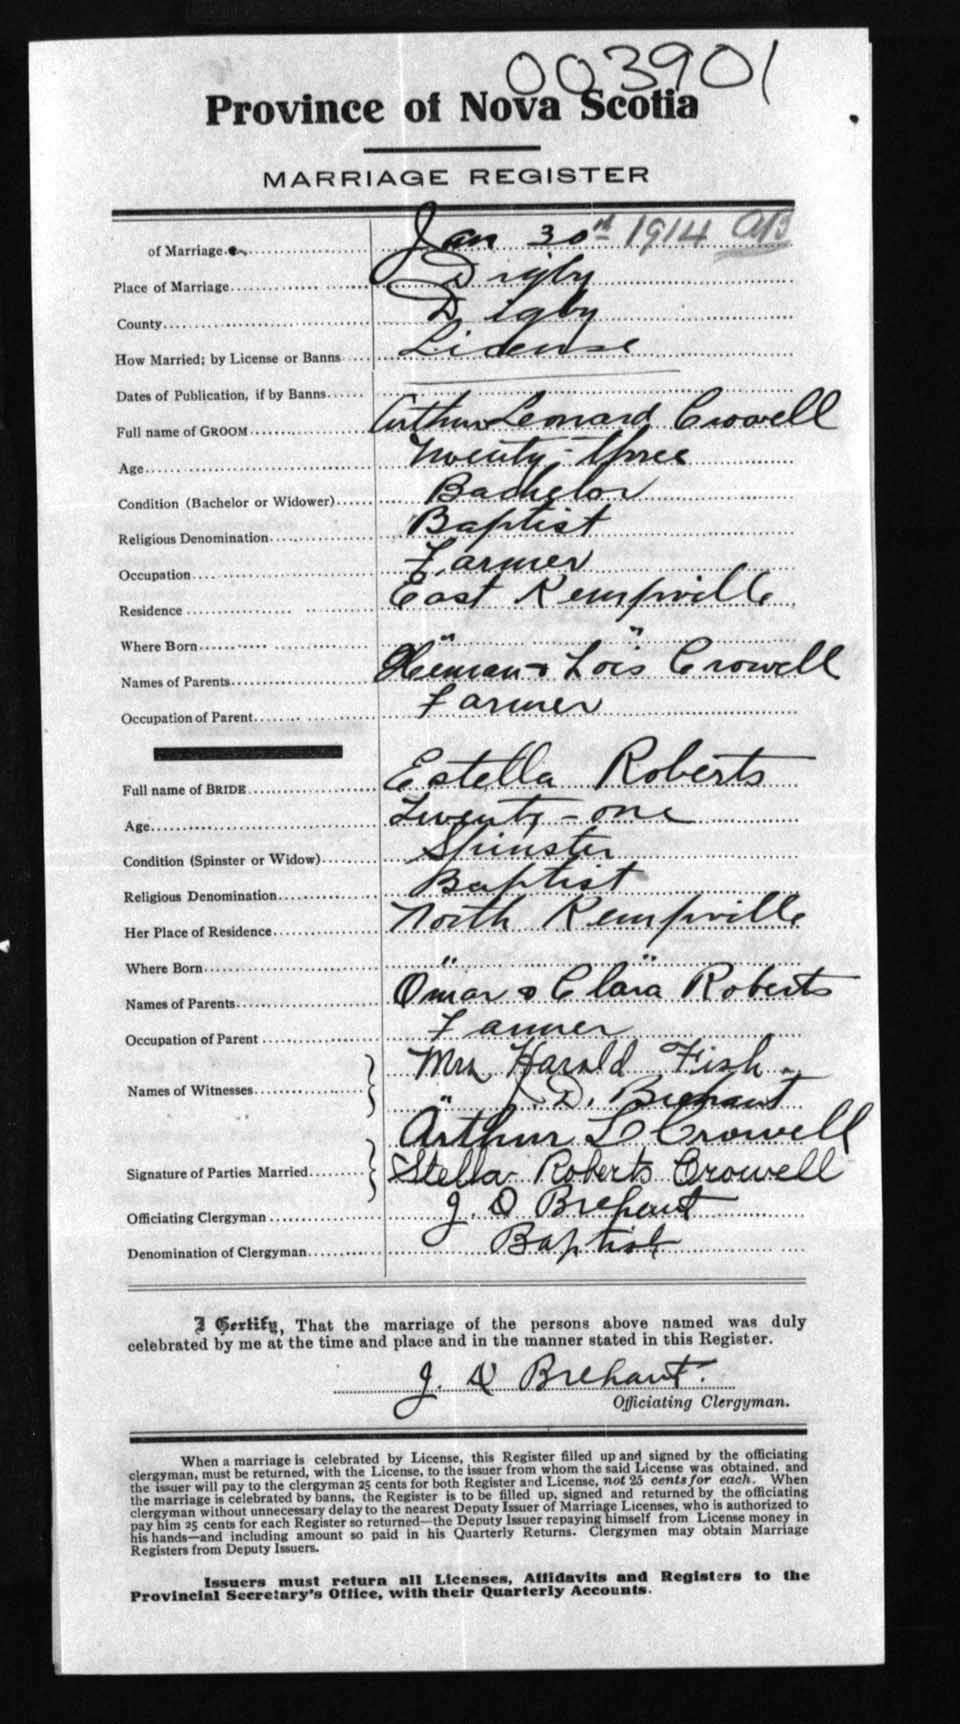 003901
Province of Nova Scotia
MARRIAGE REGISTER
of Marriage Jan 30th 1914
Place of Marriage Digby
County Digby
How Married; by License or Banns License
Dates of Publication, if by Banns
Full name of GROOM Arthur Leonard Crowell
Age Twenty-three
Condition (Bachelor or Widower) Bachelor
Religious Denomination Baptist
Occupation Farmer
Residence East Kempville
Where Born " "
Names of Parents Heman & Lois Crowell
Occupation of Parent Farmer
Full name of BRIDE Estella Roberts
Age Twenty-one
Condition (Spinster or Widow) Spinster
Religious Denomination Baptist
Her Place of Residence North Kempville
Where Born " "
Names of Parents Omar & Clara Roberts
Occupation of Parent Farmer
Names of Witnesses Mrs Harald Fish
" J. D. Brehaut
Arthur L Crowell
Signature of Parties Married Stella Roberts Crowell
Officiating Clergyman J. D Brehaut
Denomination of Clergyman Baptist
I Certify, That the marriage of the persons above named was duly
celebrated by me at the time and place and in the manner stated in this Register.
J. D Brehaut.
Officiating Clergyman.
When a marriage is celebrated by License, this Register filled up and signed by the officiating
clergyman, must be returned, with the License, to the issuer from whom the said License was obtained, and
the issuer will pay to the clergyman 25 cents for both Register and License, not 25 cents for each. When
the marriage is celebrated by banns, the Register is to be filled up, signed and returned by the officiating
clergyman without unnecessary delay to the nearest Deputy Issuer of Marriage Licenses, who is authorized to
pay him 25 cents for each Register so returned—the Deputy Issuer repaying himself from License money in
his hands—and including amount so paid in his Quarterly Returns. Clergymen may obtain Marriage
Registers from Deputy Issuers.
Issuers must return all Licenses, Affidavits and Registers to the
Provincial Secretary's Office, with their Quarterly Accounts.